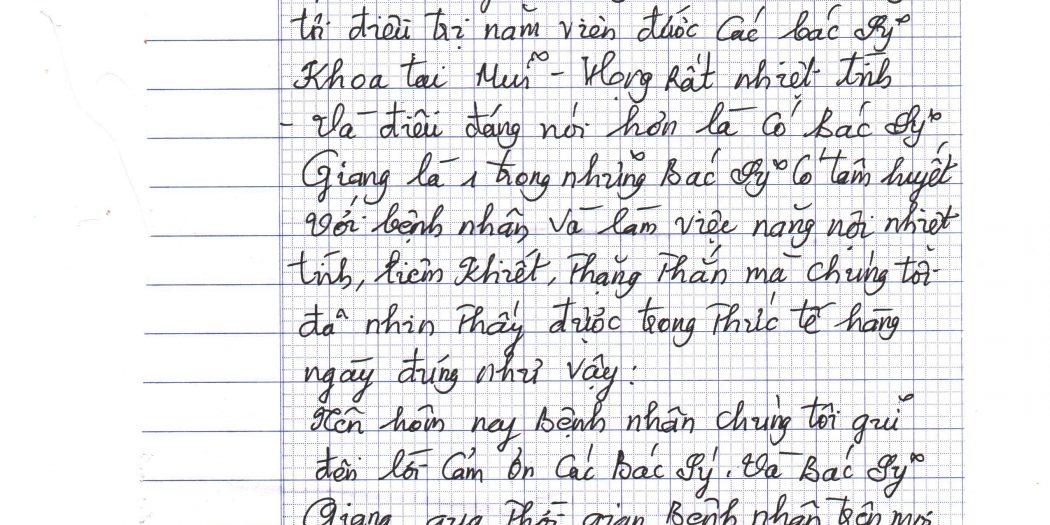 tôi điều trị nằm viện được Các bác sỹ
Khoa tai Mũi - Họng Rất nhiệt tình
- Và điều đáng nói hơn là Có Bác sỹ
Giang là 1 trong những Bác sỹ Có tâm huyết
Với bệnh nhân và làm việc năng nổi nhiệt
tình, liêm Khiết, Thẳng Thắn mà chúng tôi
đã nhìn Thấy được trong Thực tế hàng
ngày đúng như vậy:
Nên hôm nay Bệnh nhân chúng tôi gửi
đến lời Cảm ơn Các Bác sỹ. Và Bác sỹ
Giang qua Thời gian Bệnh nhân